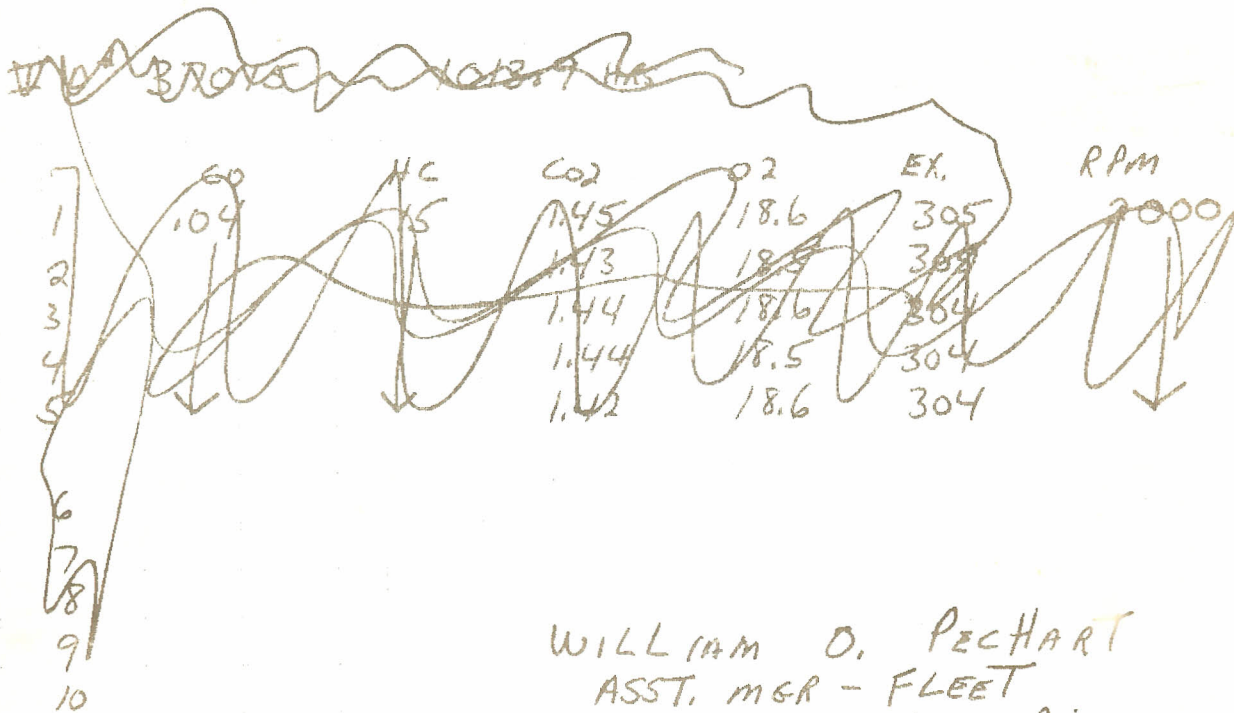 1018.9 HRS
CO HC CO2 O2 EX. RPM
1 .04 15 1.45 18.6 305 2000
2 1.43 18.5 305
3 1.44 18.6 304
4 1.44 18.5 304
5 1.42 18.6 304
6
7
8
9
10
WILLIAM O. PECHART
ASST. MGR - FLEET